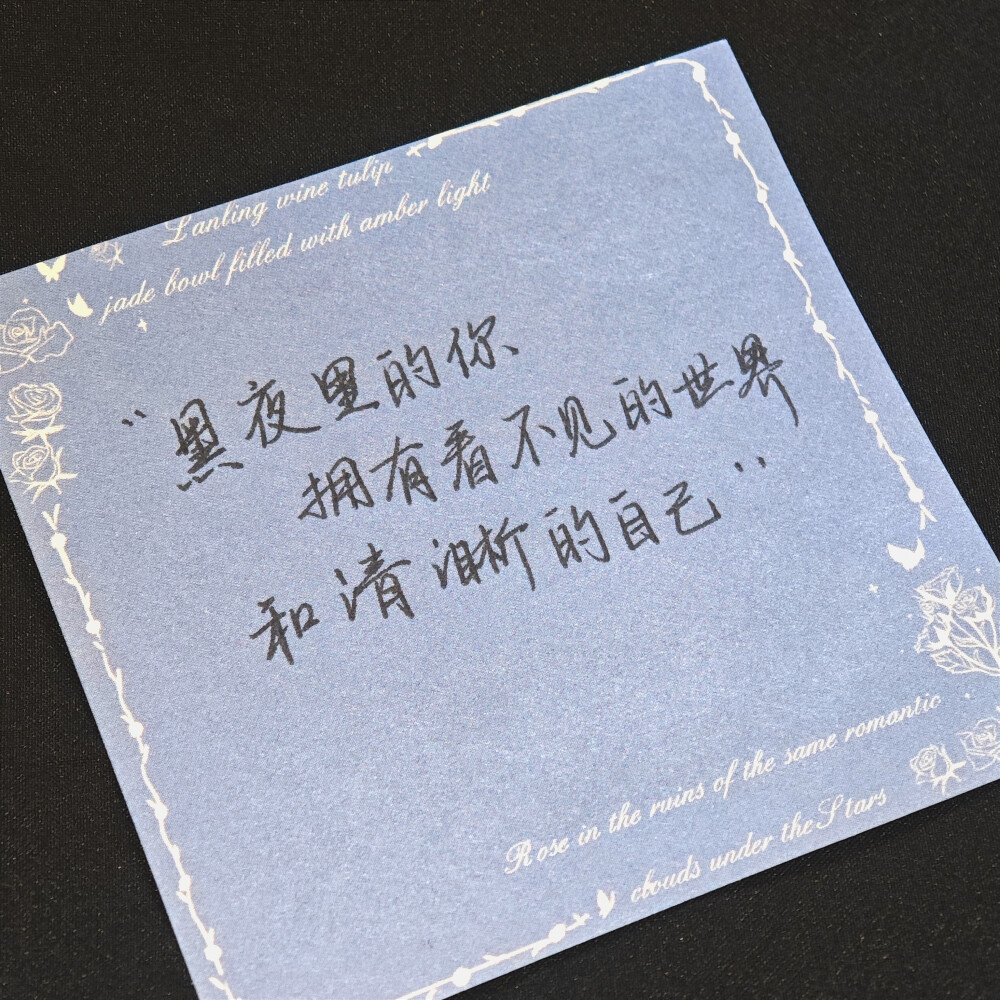 Lanling wine tulip
jade bowl filled with amber light
“黑夜里的你、
拥有看不见的世界
和清晰的自己”
Rose in the ruins of the same romantic
clouds under the Stars